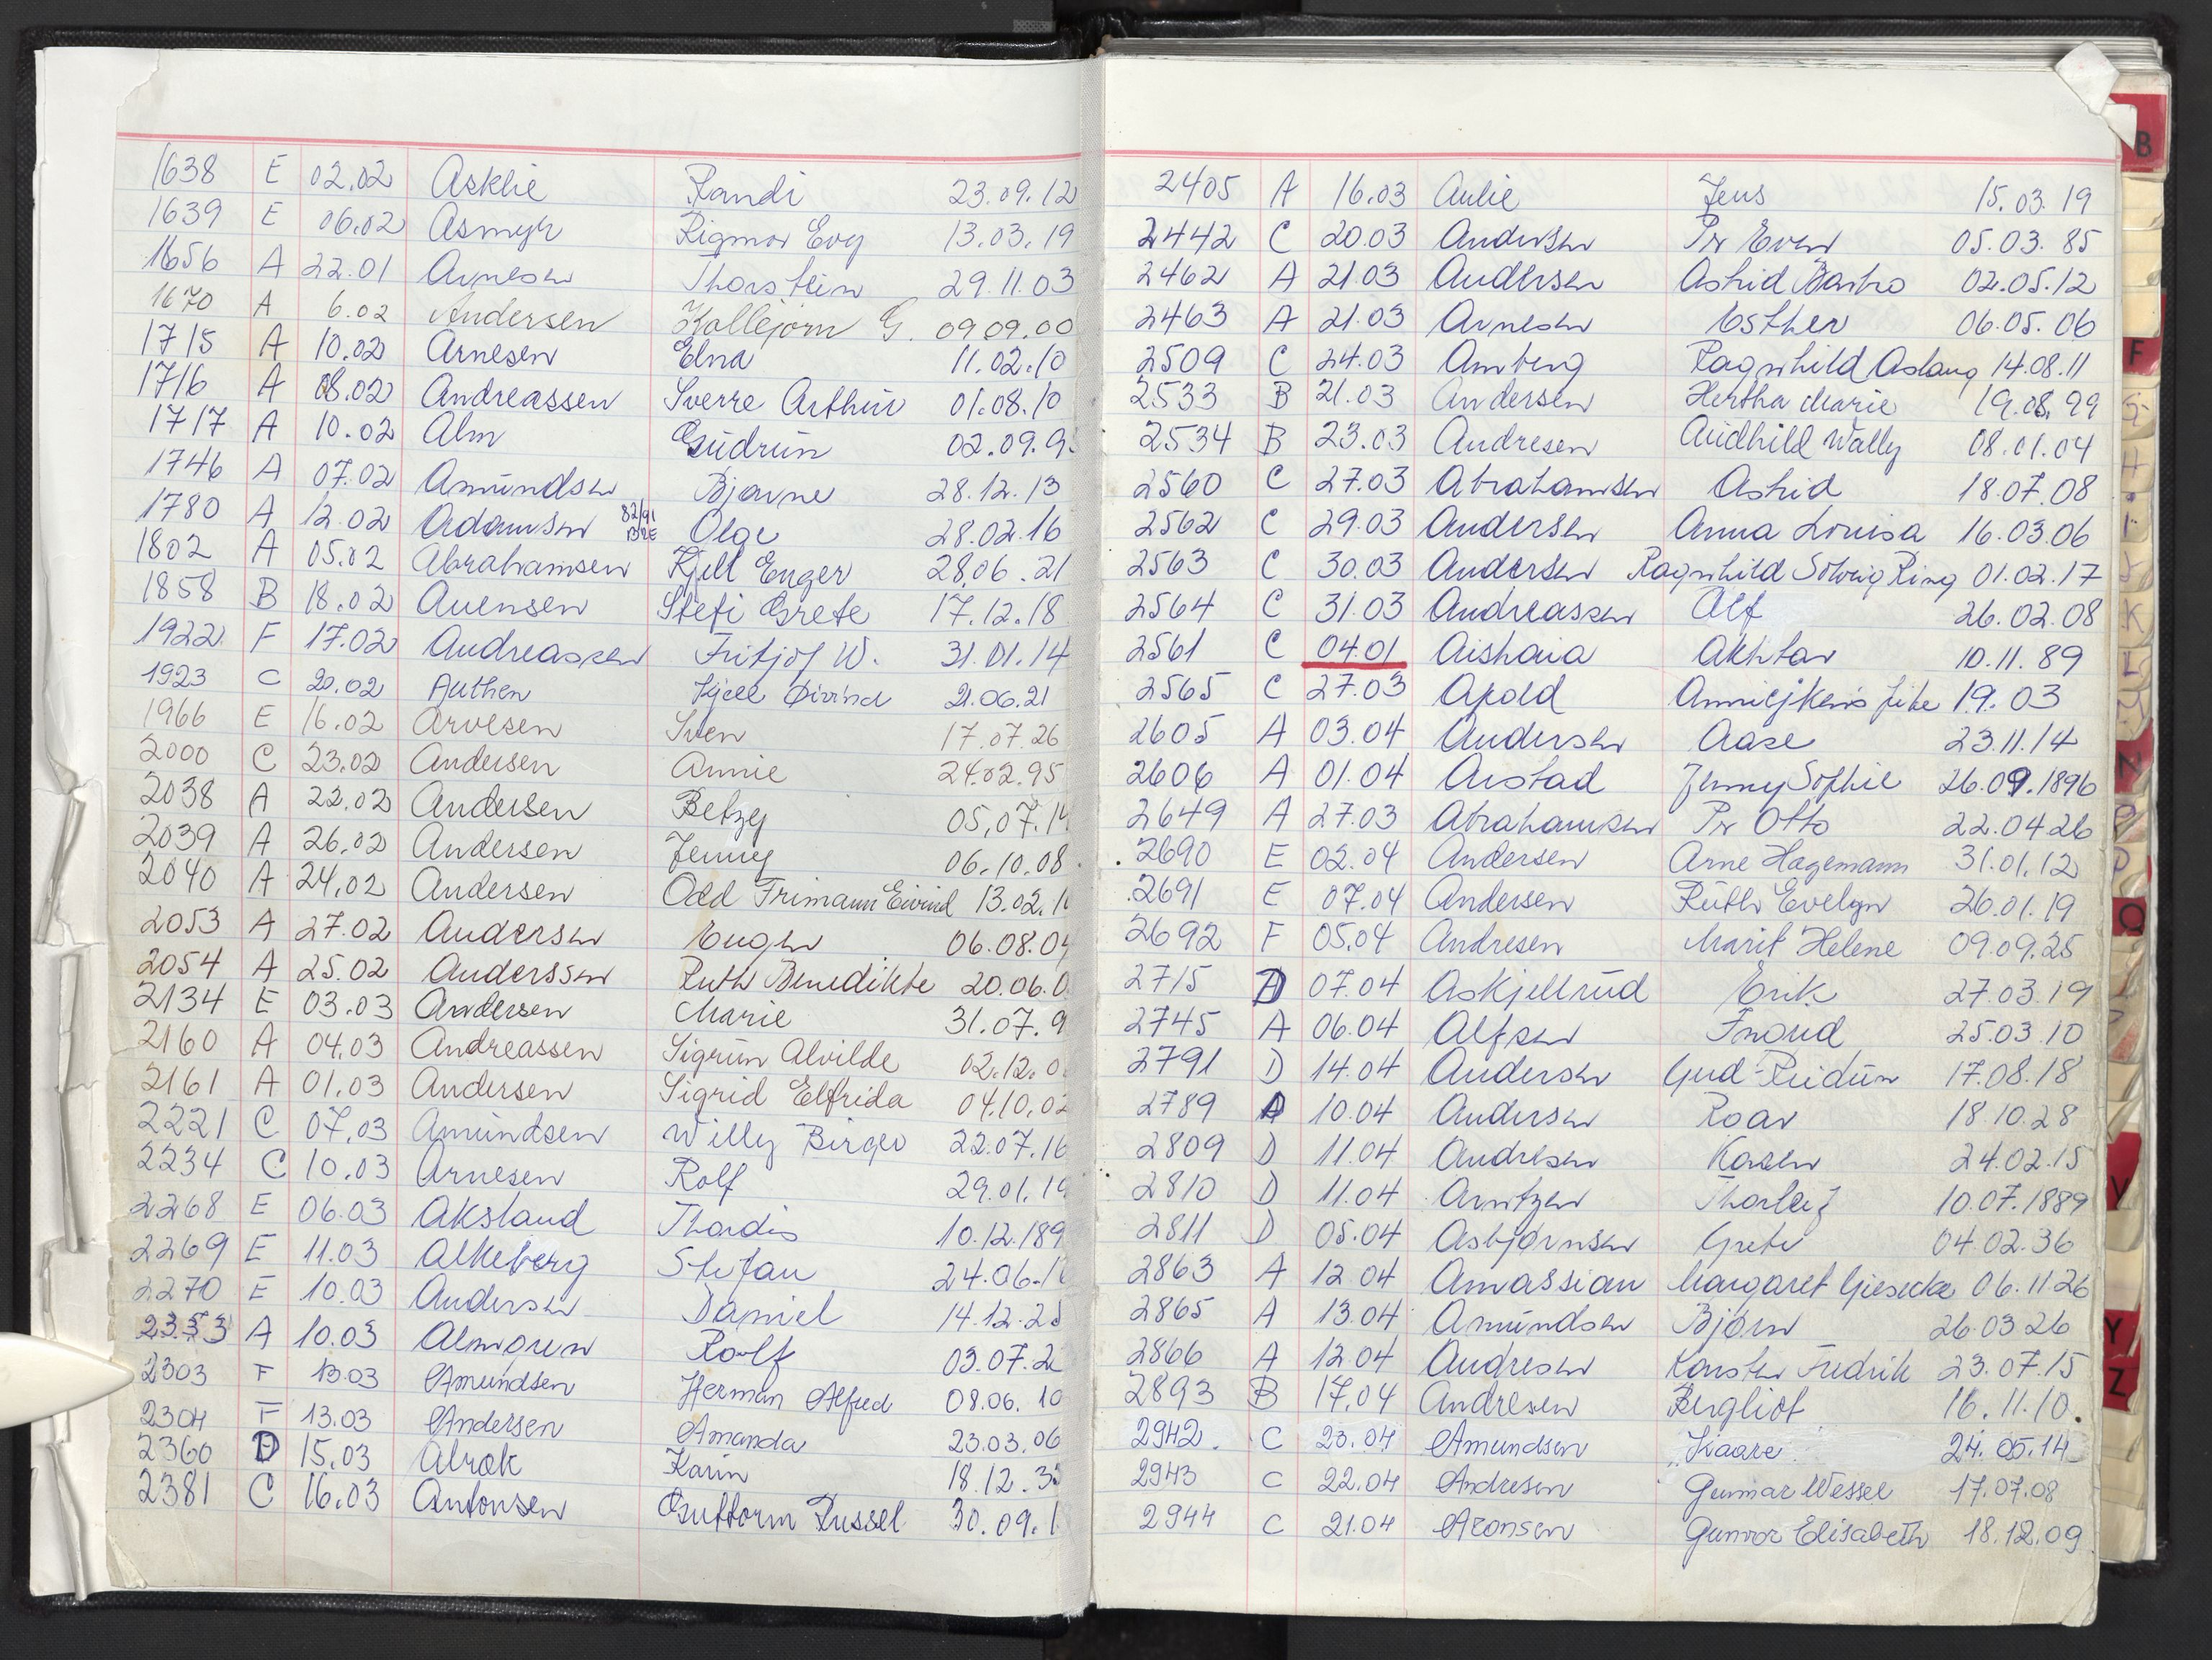 1638 E 02.02 Asklie Randi 23.09.12
1639 E 06.02 Asmyr Rigmor Evy 13.03.19
1656 A 22.01 Arnesen Thorstein 29.11.03
1670 A 6.02 Andersen Kallejorn G. 09.09.00
1715 A 10.02 Arnesen Edna 11.02.10
1716 A 08.02 Andreassen Sverre Arthur 01.08.10
1717 A 10.02 Alm Gudrun 02.09.9
1746 A 07.02 Amundsen Bjarne 28.12.13
1780 A 12.02 Adamsen 82/91 Olga 28.02.16
1802 A 05.02 Abrahamsen Kjell Enger 28.06.21
1858 B 18.02 Auensen Stefi Grete 17.12.18
1922 F 17.02 Andreassen Fritjof W. 31.01.14
1923 C 20.02 Authen Kjell Øivind 21.06.21
1966 E 16.02 Arvesen Sven 17.07.26
2000 C 23.02 Andersen Annie 24.02.95
2038 A 22.02 Andersen Betzy 05.07.14
2039 A 26.02 Andersen Jenny 06.10.08
2040 A 24.02 Andersen Odd Frimann Eivind 13.02.1
2053 A 27.02 Andersen Eugen 06.08.04
2054 A 25.02 Anderssen Ruth Benedikte 20.06.0
2134 E 03.03 Andersen Marie 31.07.9
2160 A 04.03 Andreassen Sigrun Alvilde 02.12.0
2161 A 01.03 Andersen Sigrid Elfrida 04.10.02
2221 C 07.03 Amundsen Willy Birger 22.07.16
2234 C 10.03 Arnesen Rolf 29.01.19
2268 E 06.03 Aksland Thordis 10.12.189
2269 E 11.03 Alkeberg Stefan 24.06.1
2270 E 10.03 Andersen Daniel 14.12.25
2353 A 10.03 Almgren Rolf 03.07.2
2303 F 13.03 Amundsen Herman Alfred 08.06.10
2304 F 13.03 Andersen Amanda 23.03.06
2360 D 15.03 Alrok Karin 18.12.3
2381 C 16.03 Antonsen Guttorm Russel 30.09.1
2405 A 16.03 Aulie Jens 15.03.19
2442 C 20.03 Andersen Pr Even 05.03.85
2462 A 21.03 Andersen Astrid Barbro 02.05.12
2463 A 21.03 Arnesen Esther 06.05.06
2509 C 24.03 Amberg Ragnhild Aslaug 14.08.11
2533 B 21.03 Andersen Hertha Marie 19.08.99
2534 B 23.03 Andresen Audhild Wally 08.01.04
2560 C 27.03 Abrahamsen Astrid 18.07.08
2562 C 29.03 Andersen Anna Louisa 16.03.06
2563 C 30.03 Andersen Ragnhild Solveig Ring 01.02.17
2564 C 31.03 Andreassen Alf 26.02.08
2561 C 04.01 Aishaia Akhtar 10.11.89
2565 C 27.03 Apold 19.03
2605 A 03.04 Andersen Aase 23.11.14
2606 A 01.04 Arstad Jenny Sofhie 26.09.1896
2649 A 27.03 Abrahamsen Pr Otto 22.04.26
2690 E 02.04 Andersen Arne Hagemann 31.01.12
2691 E 07.04 Andersen Ruth Evelyn 26.01.19
2692 F 05.04 Andresen Marit Helene 09.09.25
2715 D 07.04 Askjellrud Erik 27.03.19
2745 A 06.04 Alfsen Inond 25.03.10
2791 D 14.04 Andersen Gud-Reidun 17.08.18
2789 A 10.04 Andersen Roar 18.10.28
2809 D 11.04 Andresen Karen 24.02.15
2810 D 11.04 Arntzen Thorleif 10.07.1889
2811 D 05.04 Asbjørnsen Grete 04.02.36
2863 A 12.04 Amassian Margaret Giesecke 06.11.26
2865 A 13.04 Amundsen Bjørn 26.03.26
2866 A 12.04 Andresen Karsten Fredrik 23.07.15
2893 B 17.04 Andresen Bergliot 16.11.10.
2942. C 23.04 Amundsen Kaare 24.05.14
2943 C 22.04 Andresen Gunnar Wessel 17.07.08
2944 C 21.04 Aronsen Gunvor Elisabeth 18.12.09
B
F
G
H
I
J
K
L
N
P
Q
V
Y
Z